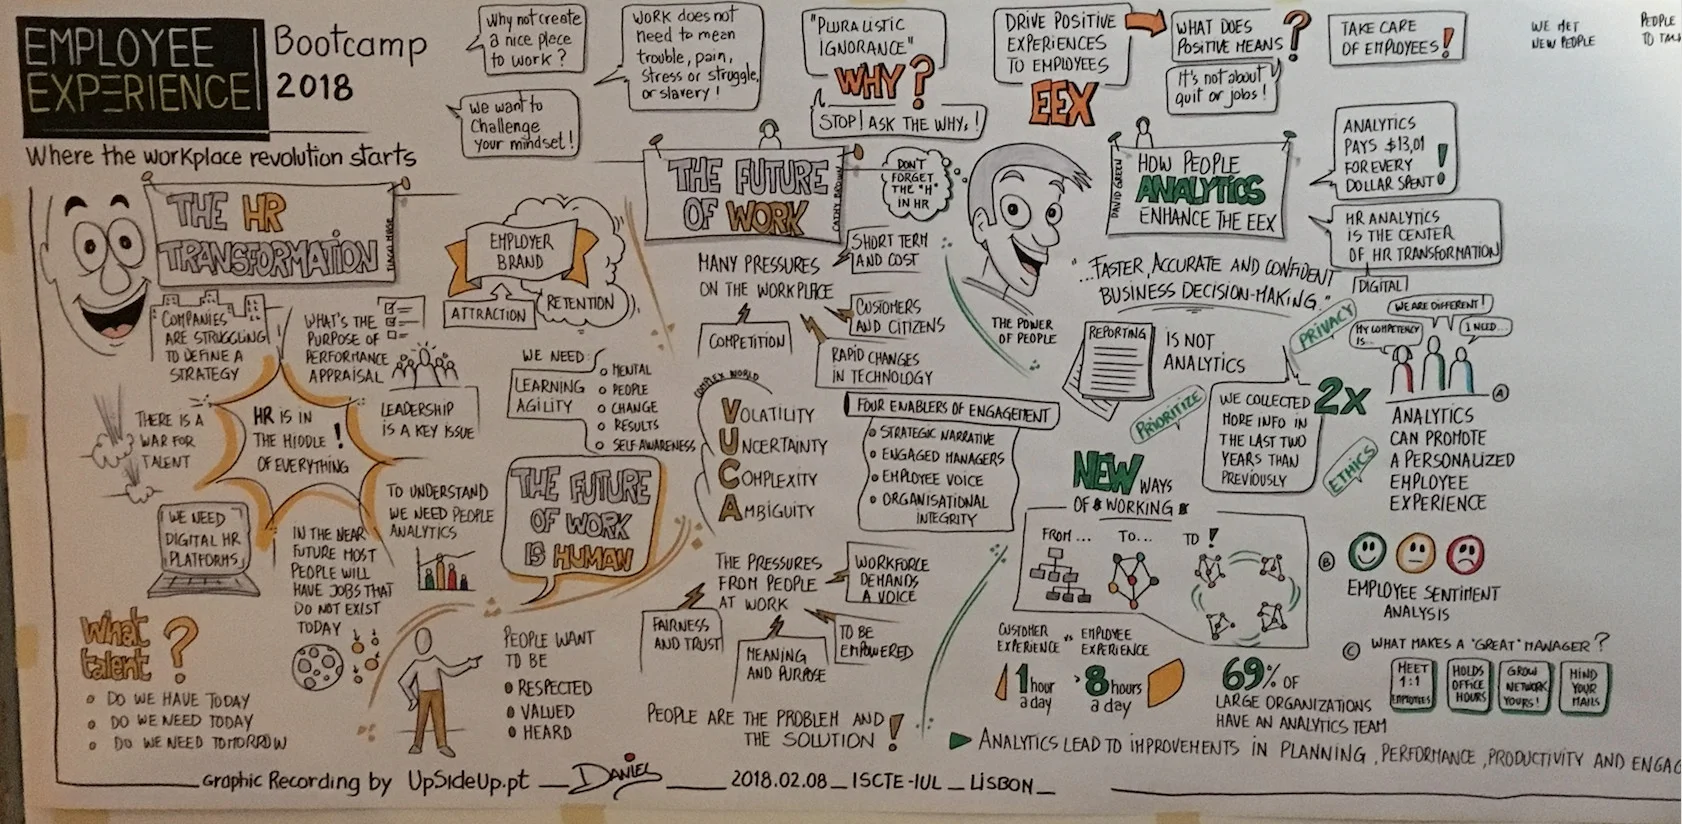 EMPLOYEE
EXPERIENCE
Bootcamp
2018
Where the workplace revolution starts
Why not create
a nice place
to work?
We want to
Challenge
your mindset!
WORK does not
need to mean
trouble, pain,
stress or struggle,
or slavery!
"PLURALISTIC
IGNORANCE"
WHY?
STOP! ASK THE WHY!
DRIVE POSITIVE
EXPERIENCES
TO EMPLOYEES
EEX
WHAT DOES
POSITIVE MEANS?
It's not about
quit or jobs!
TAKE CARE
OF EMPLOYEES!
WE MET
NEW PEOPLE
PEOPLE
THE HR
TRANSFORMATION
COMPANIES
ARE STRUGGLING
TO DEFINE A
STRATEGY
WHAT'S THE
PURPOSE OF
PERFORMANCE
APPRAISAL
EMPLOYER
BRAND
ATTRACTION
RETENTION
THERE IS A
WAR FOR
TALENT
HR IS IN
THE MIDDLE !
OF EVERYTHING
LEADERSHIP
IS A KEY ISSUE
WE NEED
DIGITAL HR
PLATFORMS
IN THE NEAR
FUTURE MOST
PEOPLE WILL
HAVE JOBS THAT
DO NOT EXIST
TODAY
TO UNDERSTAND
WE NEED PEOPLE
ANALYTICS
What
talent ?
DO WE HAVE TODAY
DO WE NEED TODAY
DO WE NEED TOMORROW
WE NEED:
LEARNING
AGILITY
MENTAL
PEOPLE
CHANGE
RESULTS
SELF AWARENESS
THE FUTURE
OF WORK
IS HUMAN
PEOPLE WANT
TO BE
RESPECTED
VALUED
HEARD
THE FUTURE
OF WORK
CATHY BROWN
DON'T
FORGET
THE "H"
IN HR
MANY PRESSURES
ON THE WORKPLACE
SHORT TERM
AND COST
CUSTOMERS
AND CITIZENS
COMPETITION
RAPID CHANGES
IN TECHNOLOGY
COMPLEX WORLD
VOLATILITY
UNCERTAINTY
COMPLEXITY
AMBIGUITY
FOUR ENABLERS OF ENGAGEMENT
STRATEGIC NARRATIVE
ENGAGED MANAGERS
EMPLOYEE VOICE
ORGANISATIONAL
INTEGRITY
THE PRESSURES
FROM PEOPLE
AT WORK
WORKFORCE
DEMANDS
A VOICE
FAIRNESS
AND TRUST
MEANING
AND PURPOSE
TO BE
EMPOWERED
PEOPLE ARE THE PROBLEM AND
THE SOLUTION !
THE POWER
OF PEOPLE
DAVID GREEN
HOW PEOPLE
ANALYTICS
ENHANCE THE EEX
ANALYTICS
PAYS $13,01
FOR EVERY
DOLLAR SPENT!
HR ANALYTICS
IS THE CENTER
OF HR TRANSFORMATION
DIGITAL
"...FASTER, ACCURATE AND CONFIDENT
BUSINESS DECISION-MAKING."
REPORTING
IS NOT
ANALYTICS
PRIVACY
PRIORITIZE
ETHICS
WE COLLECTED
MORE INFO IN
THE LAST TWO
YEARS THAN
PREVIOUSLY
2x
WE ARE DIFFERENT!
MY COMPETENCY
IS...
I NEED...
A
ANALYTICS
CAN PROMOTE
A PERSONALIZED
EMPLOYEE
EXPERIENCE
NEW WAYS
OF WORKING
FROM...
TO...
TO !
B
EMPLOYEE SENTIMENT
ANALYSIS
CUSTOMER
EXPERIENCE
VS
EMPLOYEE
EXPERIENCE
1 hour
a day
8 hours
a day
69% OF
LARGE ORGANIZATIONS
HAVE AN ANALYTICS TEAM
C
WHAT MAKES A "GREAT" MANAGER?
MEET
1:1
EMPLOYEES
HOLDS
OFFICE
HOURS
GROW
NETWORK
YOURS!
MIND
YOUR
MAILS
ANALYTICS LEAD TO IMPROVEMENTS IN PLANNING, PERFORMANCE, PRODUCTIVITY AND ENGAG
Graphic Recording by UpSideUp.pt
DANIEL
2018.02.08_ISCTE-IUL_LISBON_